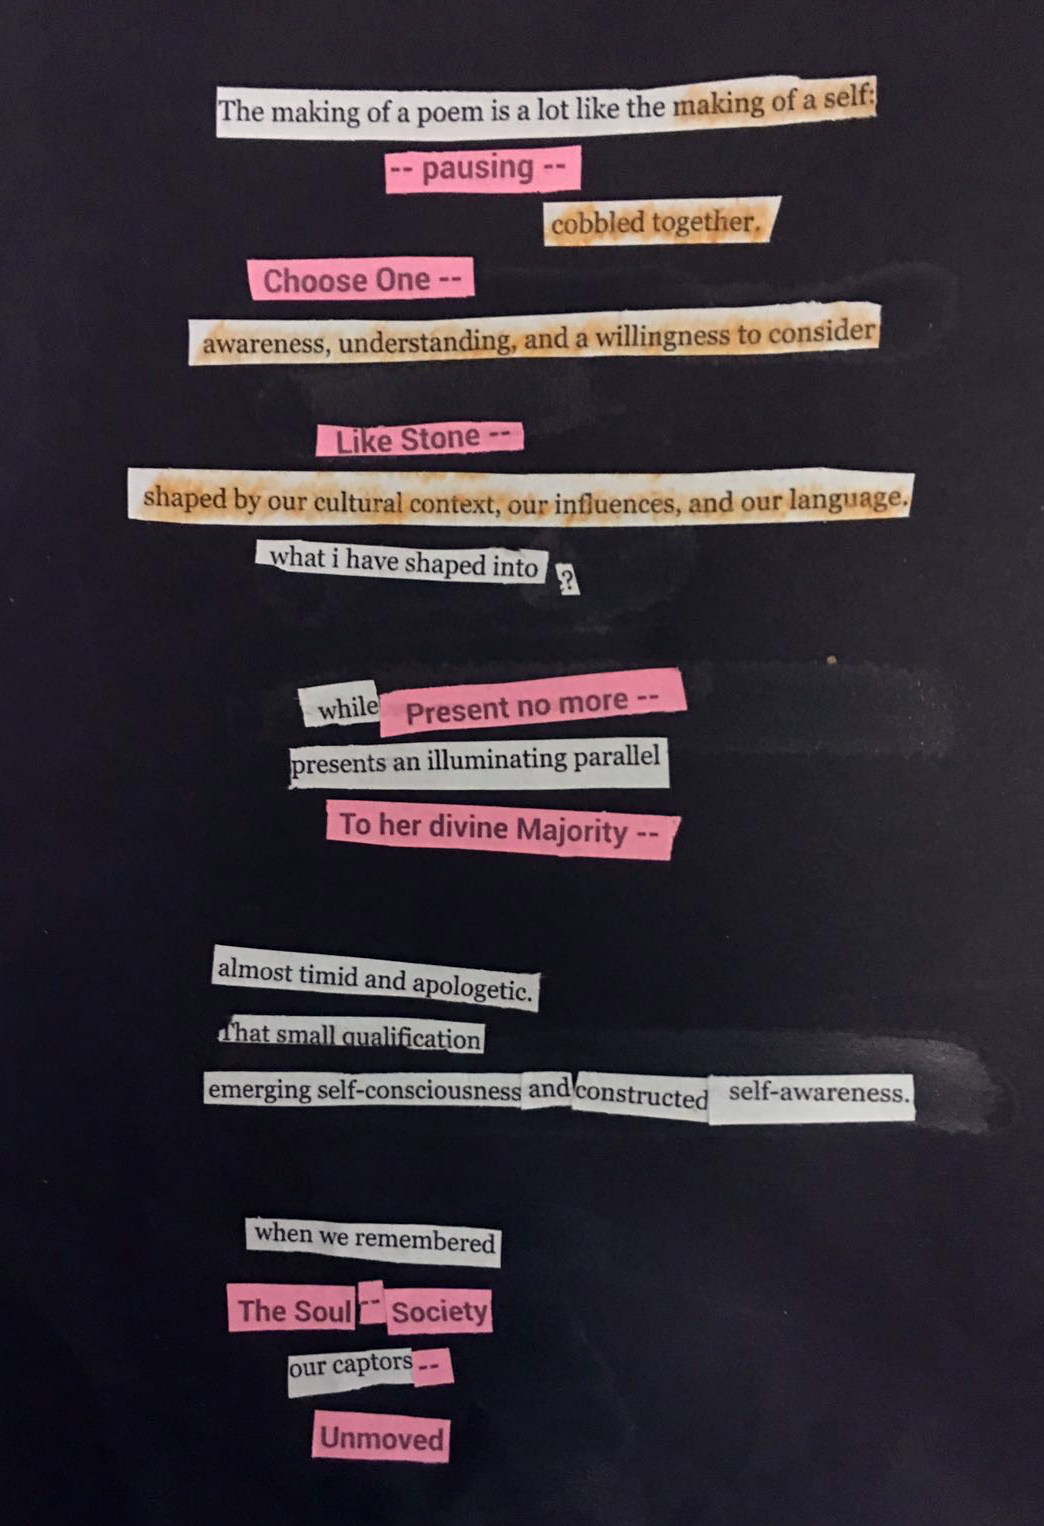 The making of a poem is a lot like the making of a self:
-- pausing --
cobbled together.
Choose One --
awareness, understanding, and a willingness to consider
Like Stone --
shaped by our cultural context, our influences, and our language.
what i have shaped into ?
while Present no more --
presents an illuminating parallel
To her divine Majority --
almost timid and apologetic.
That small qualification
emerging self-consciousness and constructed self-awareness.
when we remembered
The Soul -- Society
our captors --
Unmoved